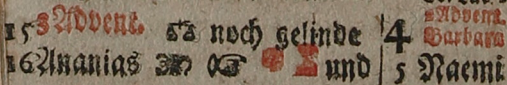 15 3 Advent. noch gelinde 4 2 Advent. Barbara
16 Ananias und 5 Naemi